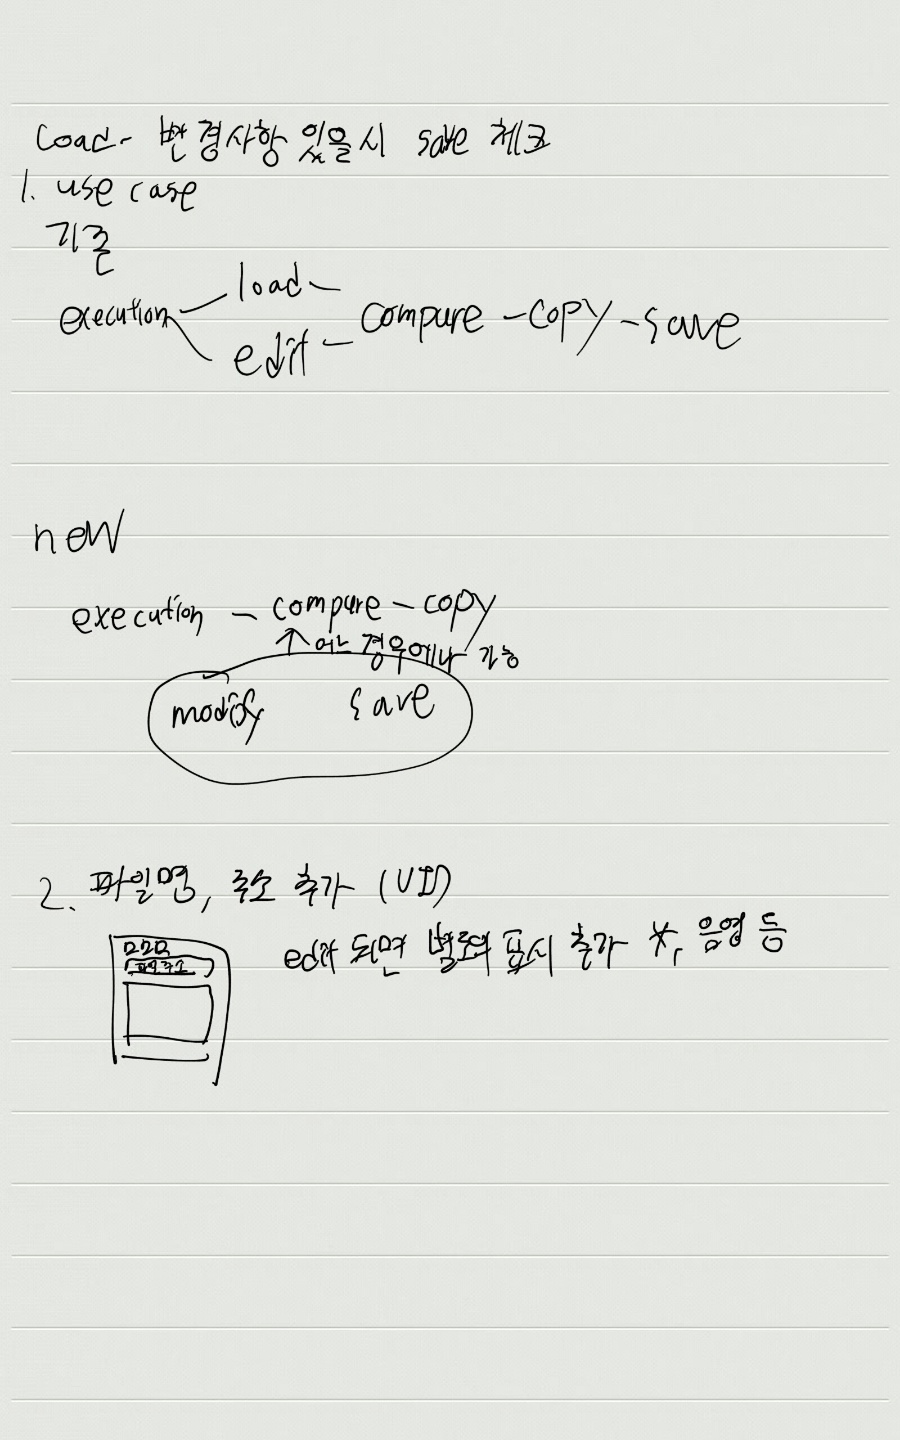 Load - 변경사항 있을시 save 체크
1. use case
기존
load
execution compare - copy - save
edit
new
execution - compare - copy
↑ 어느 경우에나 가능
modify save
2. 파일명, 주소 추가 (UI)
edit 되면 별도의 표시 추가 *, 음영 등